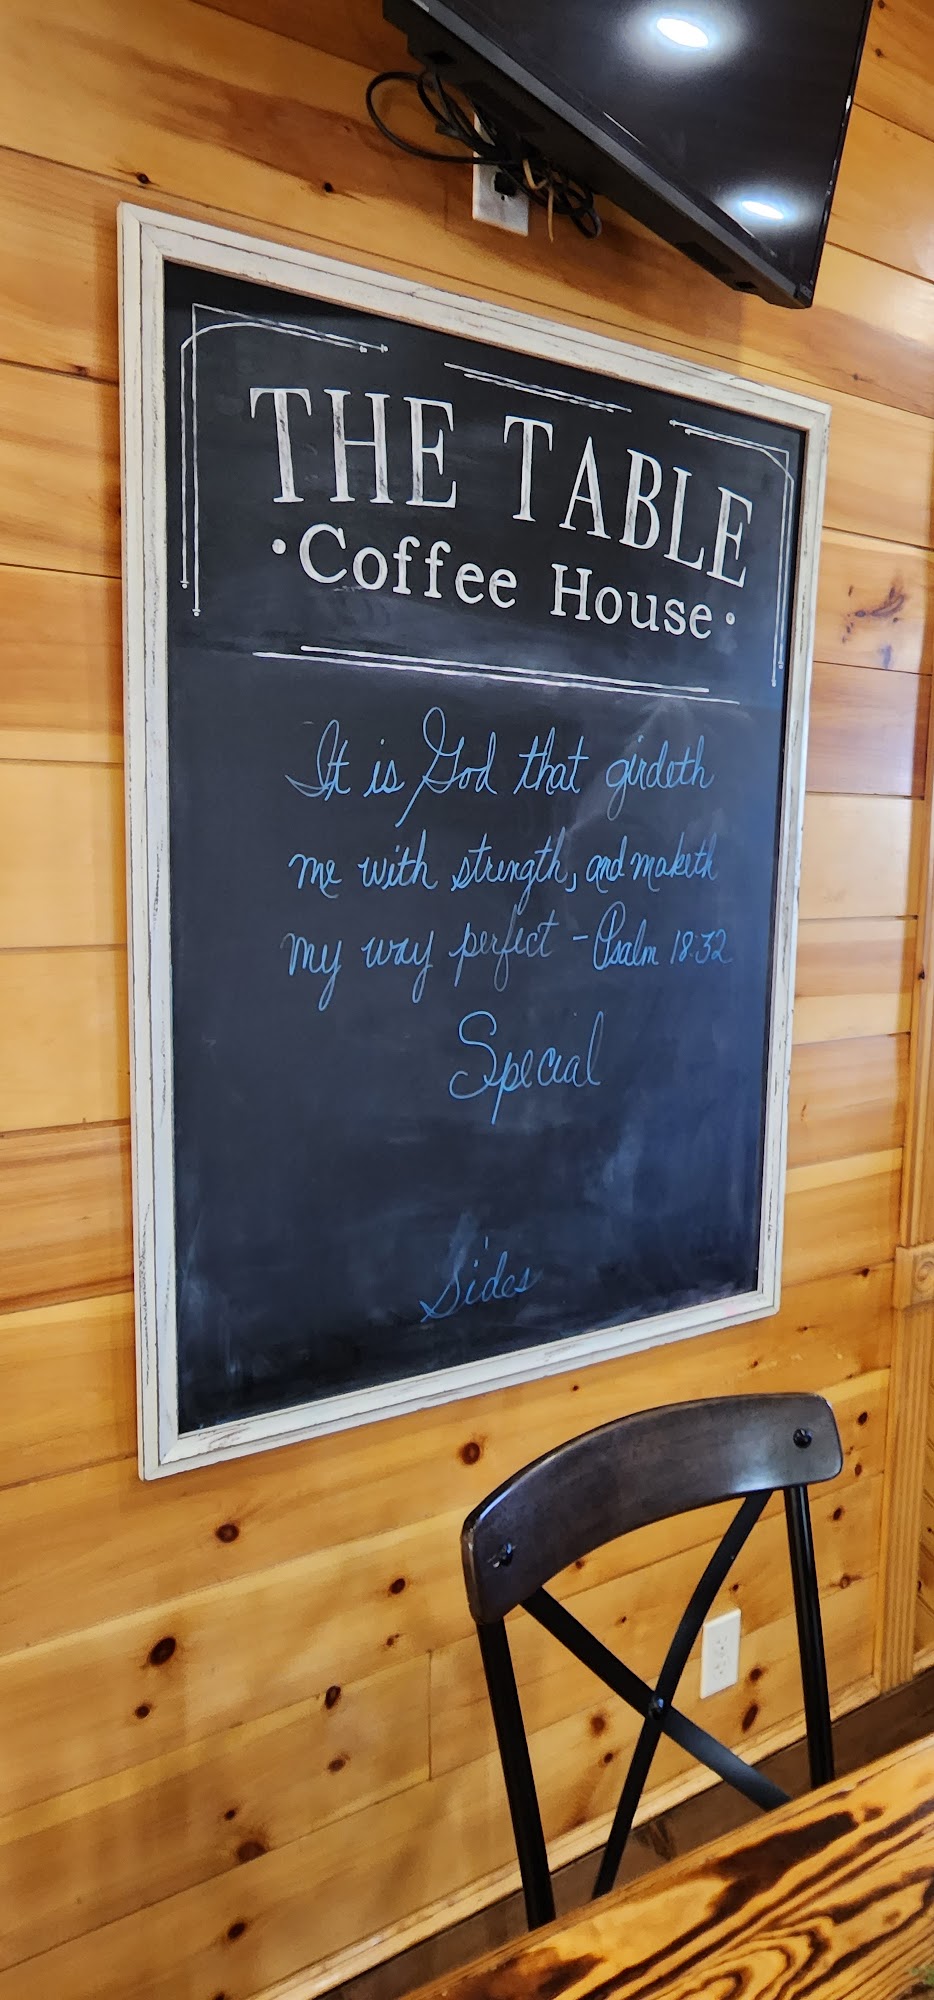 THE TABLE
• Coffee House •
It is God that girdeth
me with strength, and maketh
my way perfect - Psalm 18:32
Special
Sides